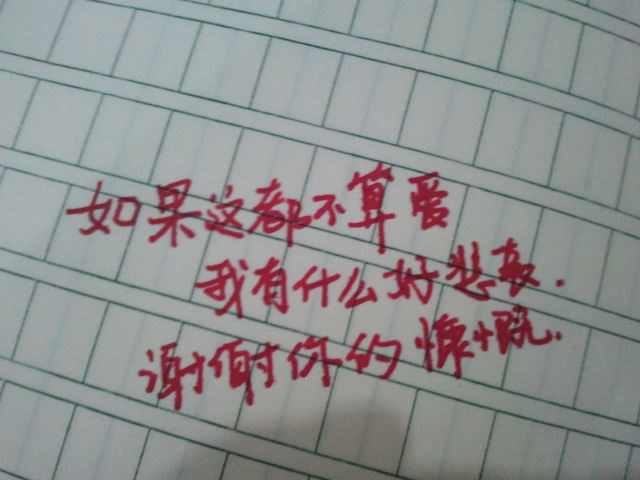 如果这都不算爱
我有什么好悲哀.
谢谢你的慷慨.